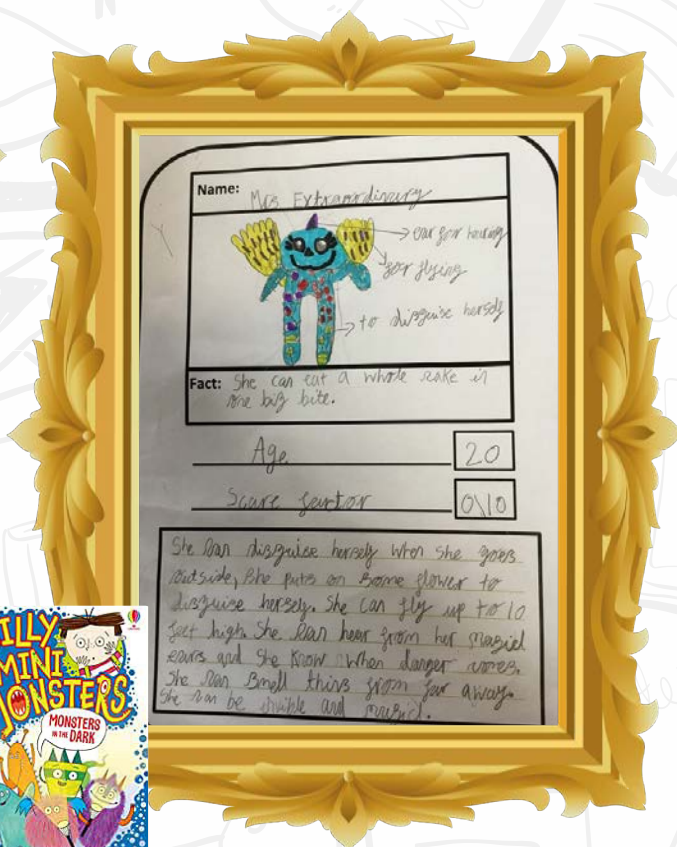 Name: Mrs Extraordinary
ear for hearing
for flying
to disguise herself
Fact: She can eat a whole cake in
one big bite.
Age 20
Scare factor 0\10
She can disguise herself when she goes
outside, She puts on some flower to
disguise herself. She can fly up to 10
feet high. She can hear from her magicl
ears and she know when danger comes.
She can smell thins from far away.
She can be and magicl.
ILLY
MINI
MONSTERS
MONSTERS
IN THE DARK